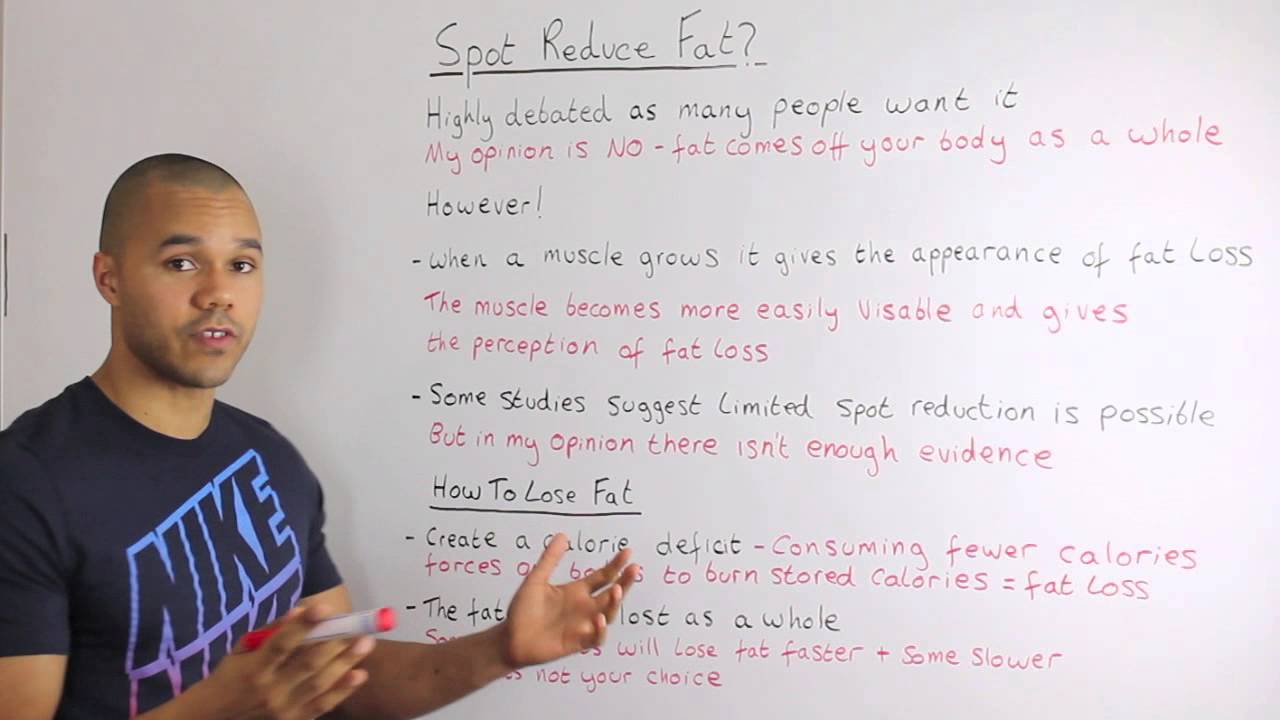 Spot Reduce Fat?
Highly debated as many people want it
My opinion is NO - fat comes off your body as a whole
However!
- when a muscle grows it gives the appearance of fat loss
The muscle becomes more easily Visable and gives
the perception of fat loss
- Some studies suggest limited spot reduction is possible
But in my opinion there isn't enough evidence
How To Lose Fat
- Create a calorie deficit - Consuming fewer calories
forces to burn stored calories = fat loss
- The fat lost as a whole
will lose fat faster + some slower
not your choice
NIKE